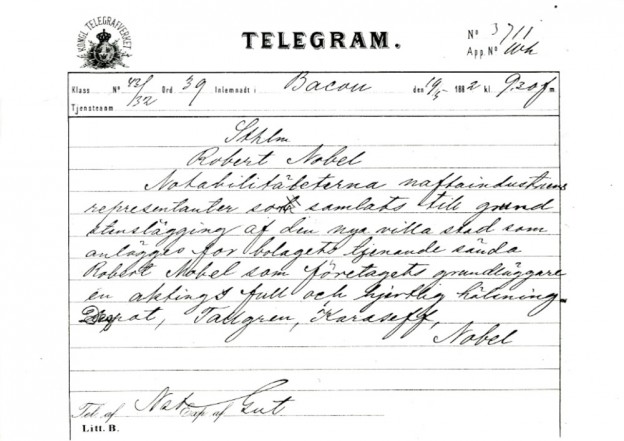 KONGL. TELEGRAFVERKET
TELEGRAM.
No 3711
App. No Wh
Klass No 43/132 Ord. 39 Inlemnadt i Bacou den 19/5 1882 kl. 9.30 f m.
Tjensteanm
Sthlm
Robert Nobel
Notabilitäleterna naftaindustriens
representanter som samlats till grund
stensläggning af din nya villa stad som
anlägges for bolagets tjenande sända
Robert Nobel som företagets grundläggare
en aktings full och hjertlig hälsning
Tallgren, Karaseff,
Nobel
Tel. af Nat Exp af Gut
Litt. B.